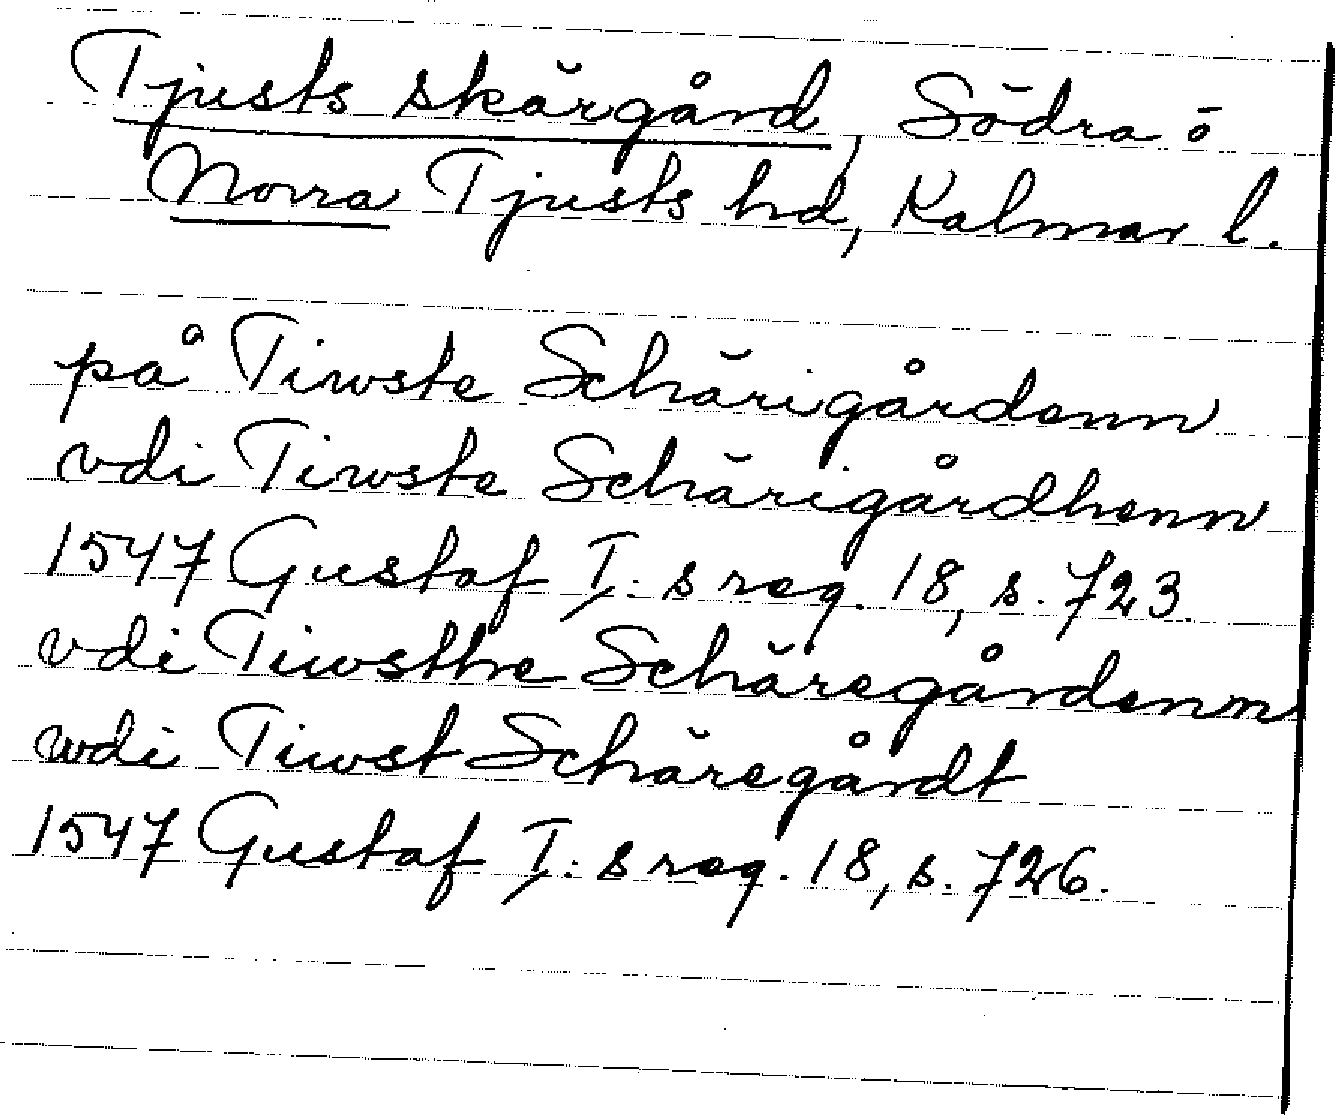 Tjusts skärgård, Södra o
Norra Tjusts hd, Kalmar l.
på Tiwste Schärigårdenn
vdi Tiwste Schärigårdhenn
1547 Gustaf I:s reg. 18, s. 723.
vdi Tiwsthe Schäregårdenn
wdi Tiwst Schäregårdt
1547 Gustaf I:s reg. 18, s. 726.